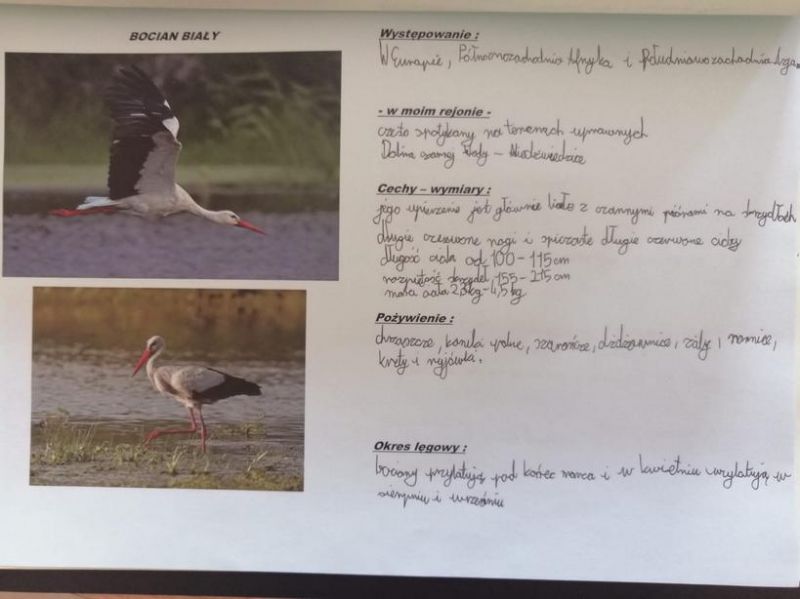 BOCIAN BIAŁY
Występowanie :
W Europie, Północnozachodnia Afryka i Południowozachodnia
- w moim rejonie -
często spotykany na terenach uprawnych
Dolina czarnej Wody – Niedźwiedzice
Cechy – wymiary :
jego upierzenie jest głównie białe z czarnymi piórami na skrzydłach
długie czerwone nogi i spiczaste długie czerwone dzioby
długość ciała od 100 - 115 cm
rozpiętość skrzydeł 155 - 215 cm
masa ciała 2,3kg - 4,5 kg
Pożywienie :
chrząszcze, koniki polne, szarańcze, dżdżownice, żaby, nornice,
krety i ryjówka.
Okres lęgowy :
bociany przylatują pod koniec marca i w kwietniu wylatują w
sierpniu i wrześniu